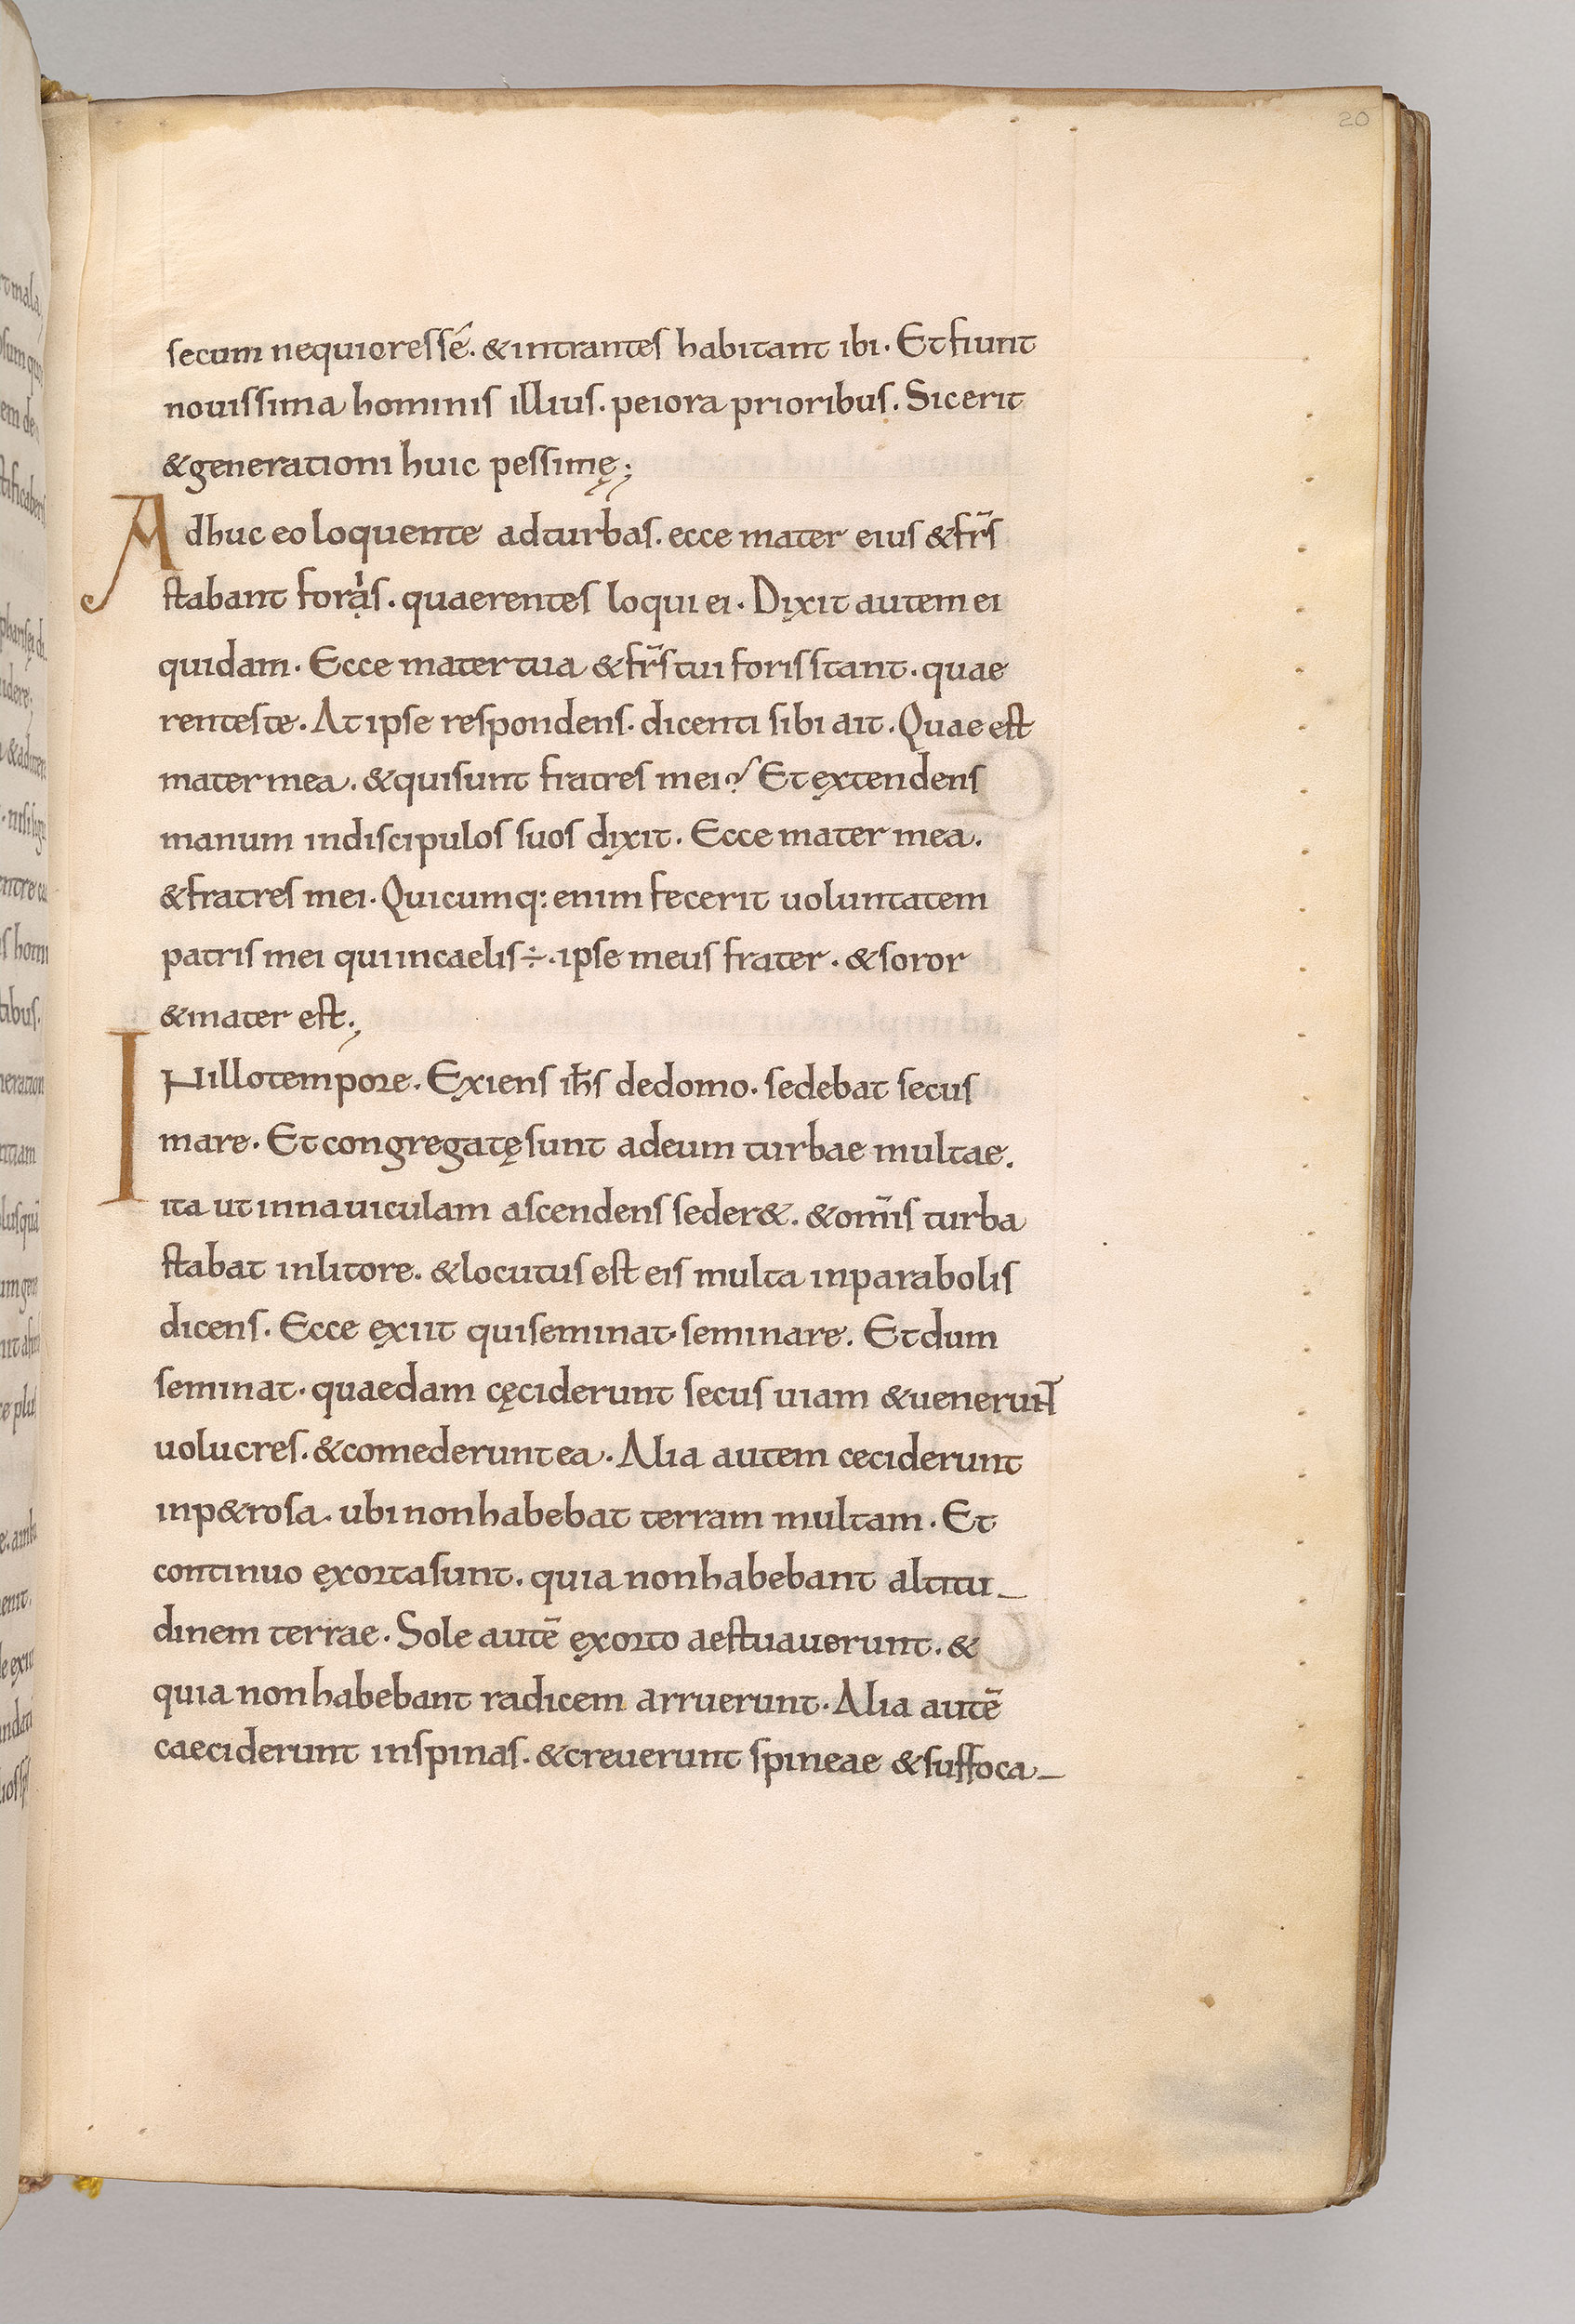 20
secum nequioressé. & intrantes habitant ibi. Et fiunt
nouissima hominis illius. peiora prioribus. Sic erit
& generationi huic pessimę;
Adhuc eo loquente ad turbas. ecce mater eius & fr̄s
stabant foras. quaerentes loqui ei. Dixit autem ei
quidam. Ecce mater tua & fr̄s tui foris stant. quae
rentes te. At ipse respondens. dicenti sibi ait. Quae est
mater mea. & qui sunt fratres mei? Et extendens
manum in discipulos suos dixit. Ecce mater mea.
& fratres mei. Quicumq: enim fecerit uoluntatem
patris mei qui in caelis ÷. ipse meus frater. & soror
& mater est;
IN illo tempore. Exiens ih̄s de domo. sedebat secus
mare. Et congregatę sunt ad eum turbae multae.
ita ut in nauiculam ascendens seder&. & om̄is turba
stabat in litore. & locutus est eis multa in parabolis
dicens. Ecce exiit qui seminat. seminare. Et dum
seminat. quaedam cęciderunt secus uiam & uenerunt
uolucres. & comederunt ea. Alia autem ceciderunt
in p&rosa. ubi non habebat terram multam. Et
continuo exorta sunt. quia non habebant altitu_
dinem terrae. Sole autē exorto aestuauerunt. &
quia non habebant radicem arruerunt. Alia autē
caeciderunt in spinas. & creuerunt spineae & suffoca_